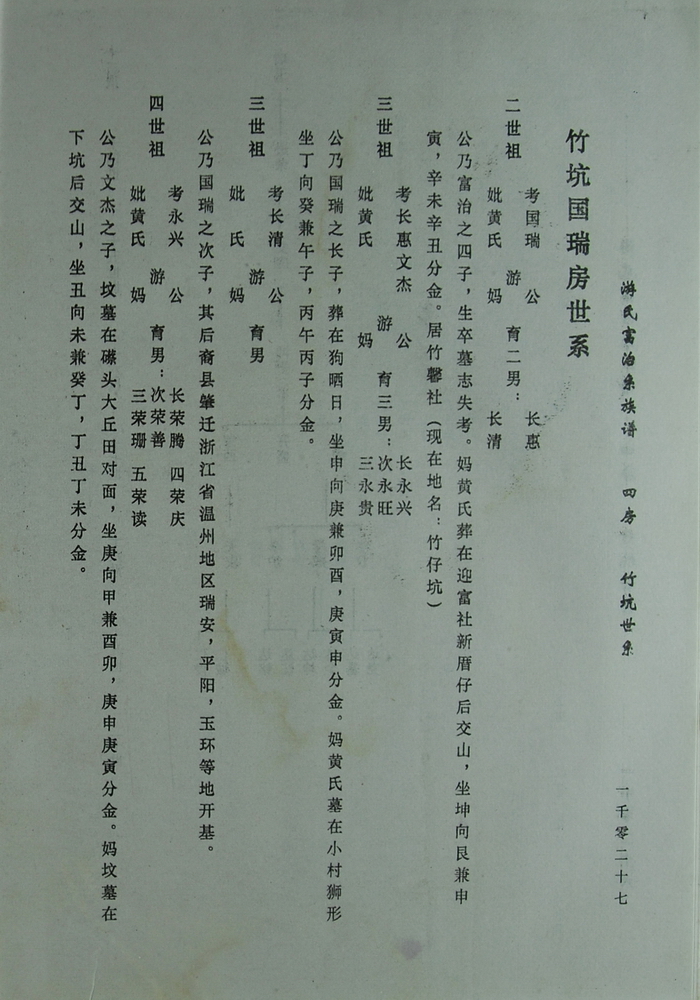 游氏富治系族谱 四房 竹坑世系 一千零二十七
竹坑国瑞房世系
二世祖 考国瑞 妣黄氏 游 公 妈 育二男： 长惠 长清
公乃富治之四子，生卒墓志失考。妈黄氏葬在迎富社新厝仔后交山，坐坤向艮兼申
寅，辛未辛丑分金。居竹馨社（现在地名：竹仔坑）
三世祖 考长惠文杰 妣黄氏 游 公 妈 育三男： 长永兴 次永旺 三永贵
公乃国瑞之长子，葬在狗晒日，坐申向庚兼卯酉，庚寅申分金。妈黄氏墓在小村狮形
坐丁向癸兼午子，丙午丙子分金。
三世祖 考长清 妣 氏 游 公 妈 育男
公乃国瑞之次子，其后裔县肇迁浙江省温州地区瑞安，平阳，玉环等地开基。
四世祖 考永兴 妣黄氏 游 公 妈 育男： 长荣腾 次荣善 三荣珊 四荣庆 五荣读
公乃文杰之子，坟墓在礤头大丘田对面，坐庚向甲兼酉卯，庚申庚寅分金。妈坟墓在
下坑后交山，坐丑向未兼癸丁，丁丑丁未分金。